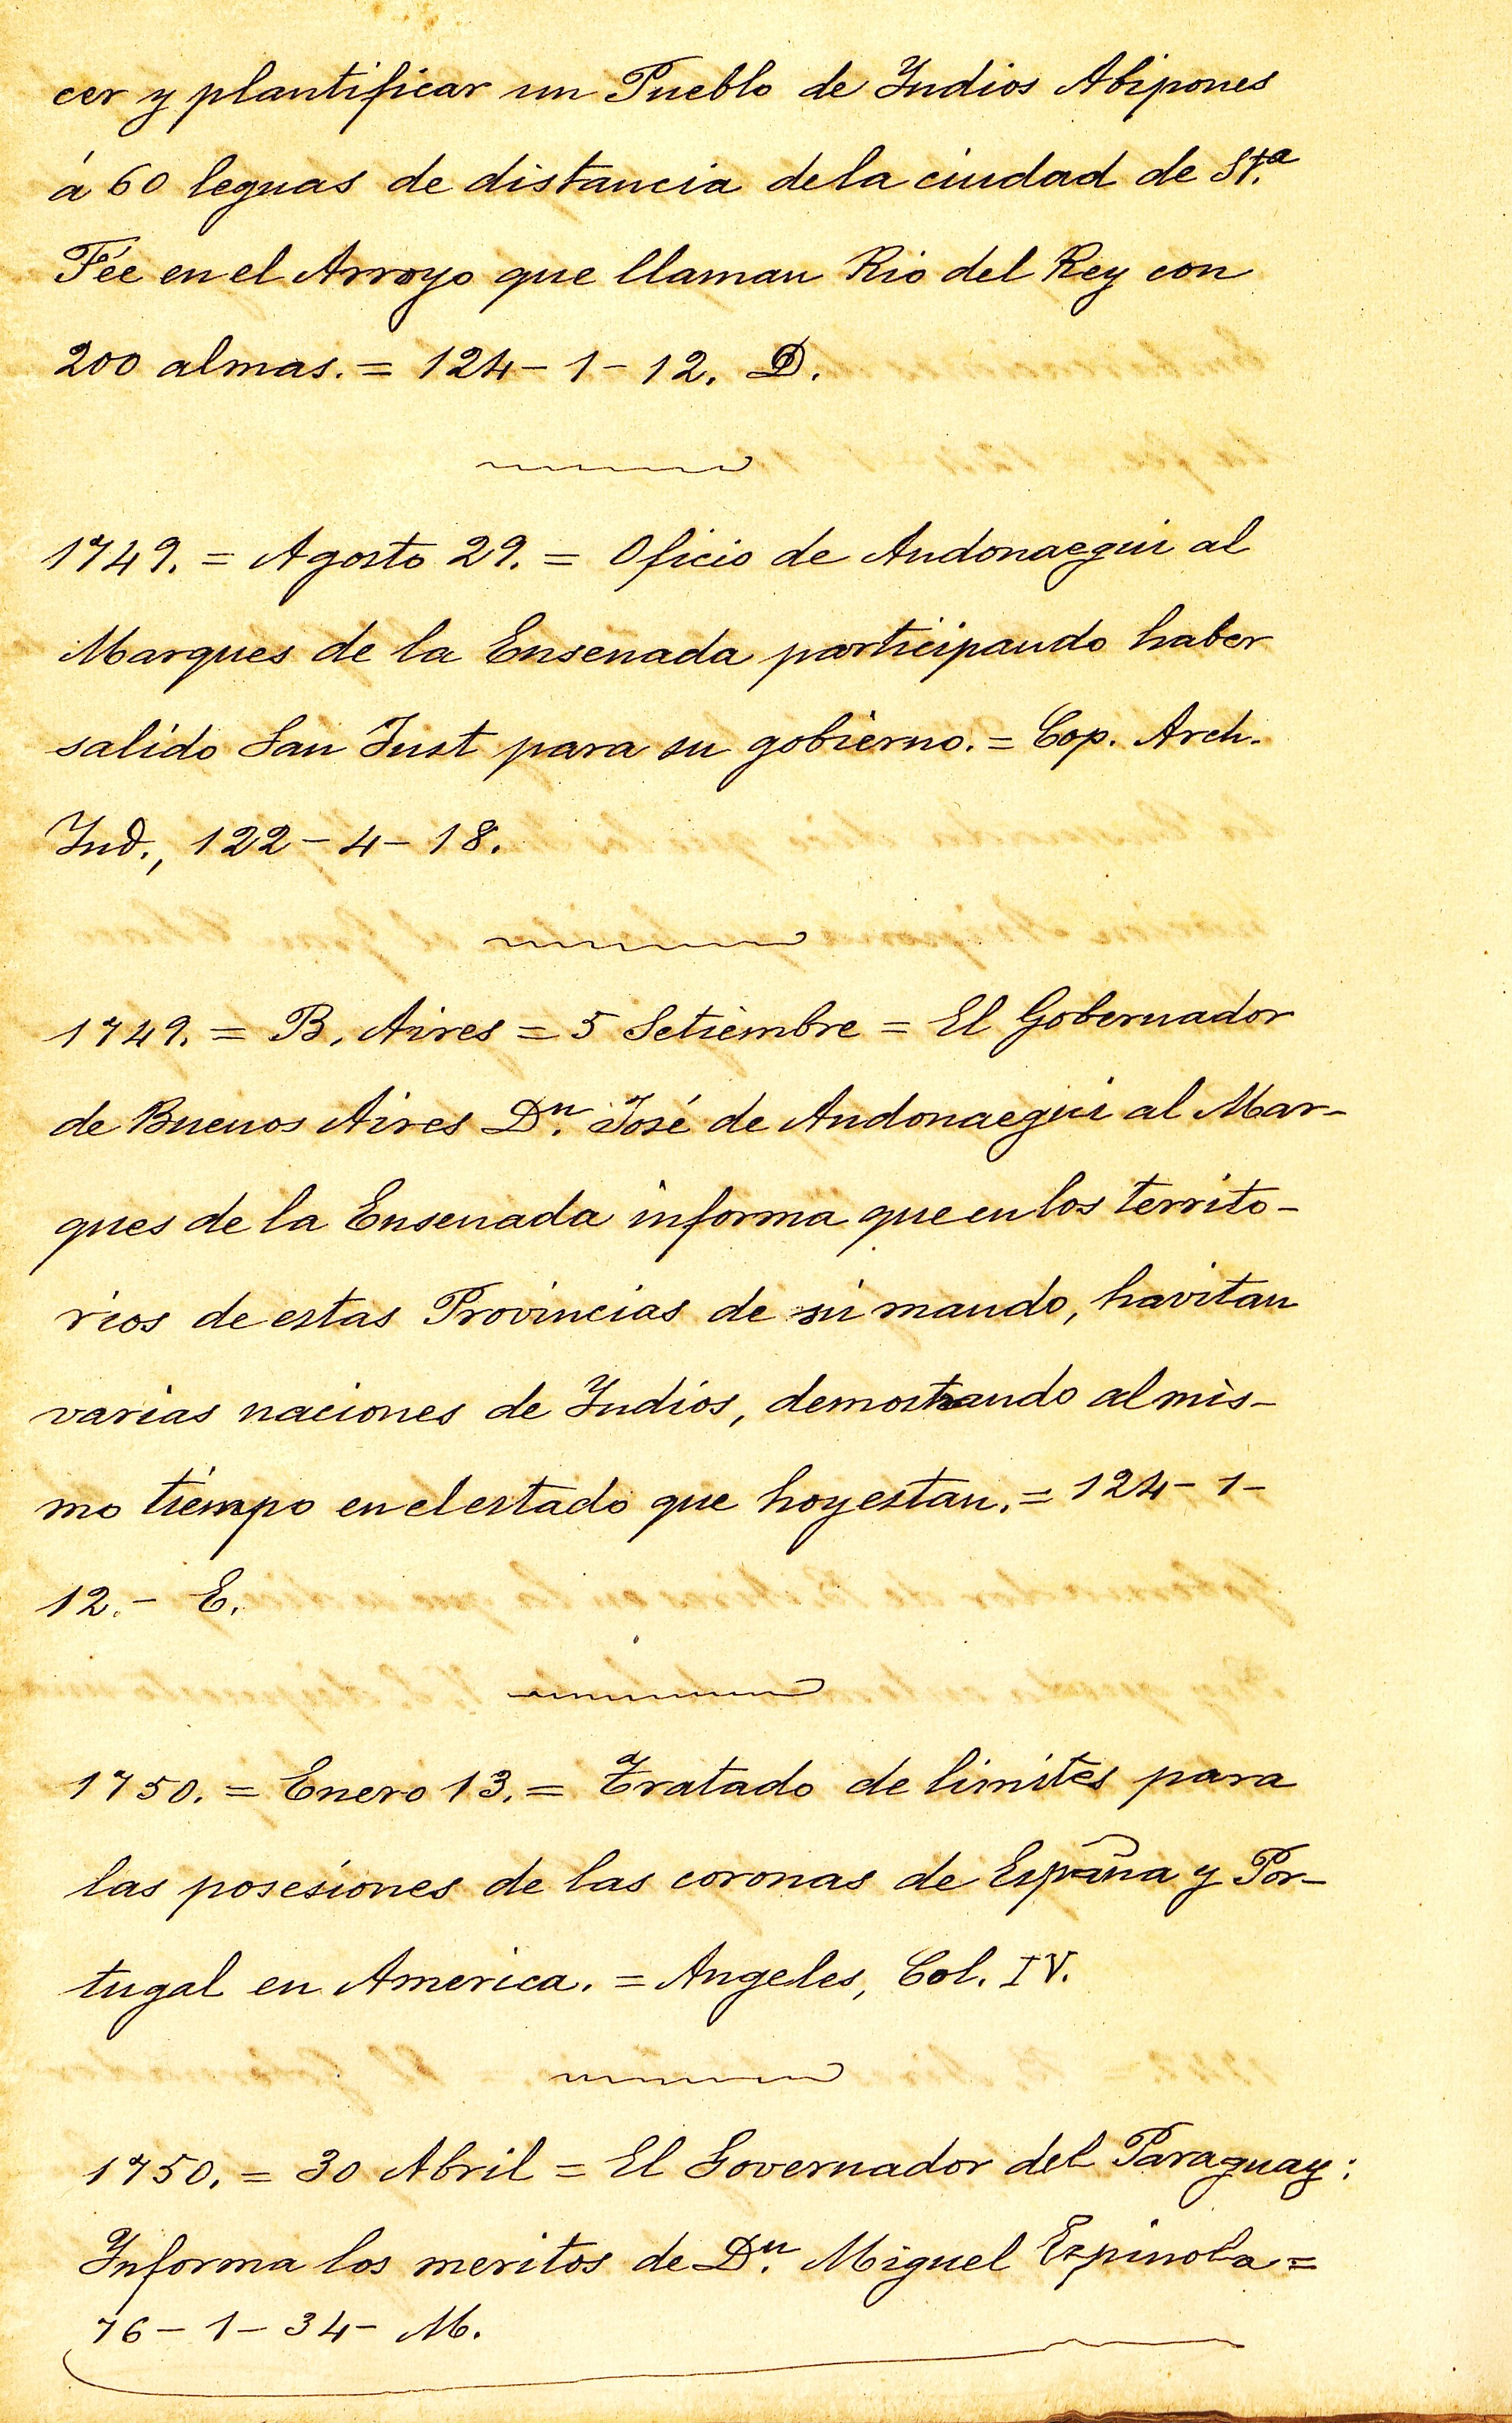 cer y plantificar un Pueblo de Indios Abipones
á 60 leguas de distancia de la ciudad de St.ª
Fée en el Arroyo que llaman Rio del Rey con
200 almas. = 124 - 1 - 12. D.
1749. = Agosto 29. = Oficio de Andonaegui al
Marques de la Ensenada participando haber
salido San Just para su gobierno. = Cop. Arch.
Ind., 122 - 4 - 18.
1749. = B. Aires = 5 Setiembre = El Gobernador
de Buenos Aires Dn. José de Andonaegui al Mar-
ques de la Ensenada informa que en los territo-
rios de estas Provincias de su mando, havitan
varias naciones de Indios, demostrando al mis-
mo tiempo en el estado que hoy estan. = 124 - 1 -
12. - E.
1750. = Enero 13. = Tratado de limites para
las posesiones de las coronas de España y Por-
tugal en America. = Angeles, Col. IV.
1750. = 30 Abril = El Governador del Paraguay:
Informa los meritos de Dn. Miguel Espinola =
76 - 1 - 34 - M.